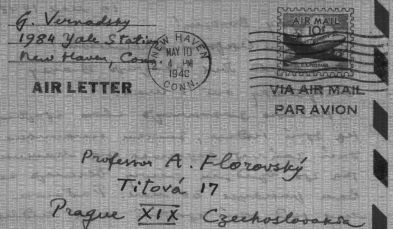 G. Vernadsky
1984 Yale Station
New Haven, Conn
NEW HAVEN
MAY 10
4 PM
CONN.
AIR MAIL
10¢
AIR LETTER
VIA AIR MAIL
PAR AVION
Professor A. Florovský
Titová 17
Prague XIX Czechoslovakia